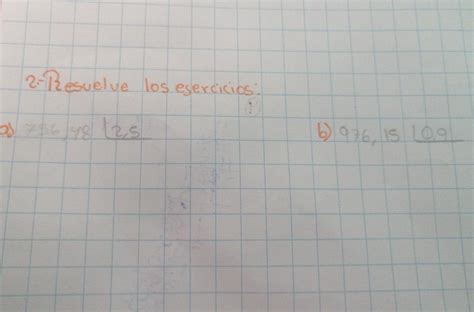 2.- Resuelve los esercicios:
a) 756,48 | 2,5 b) 976,15 | 0,9